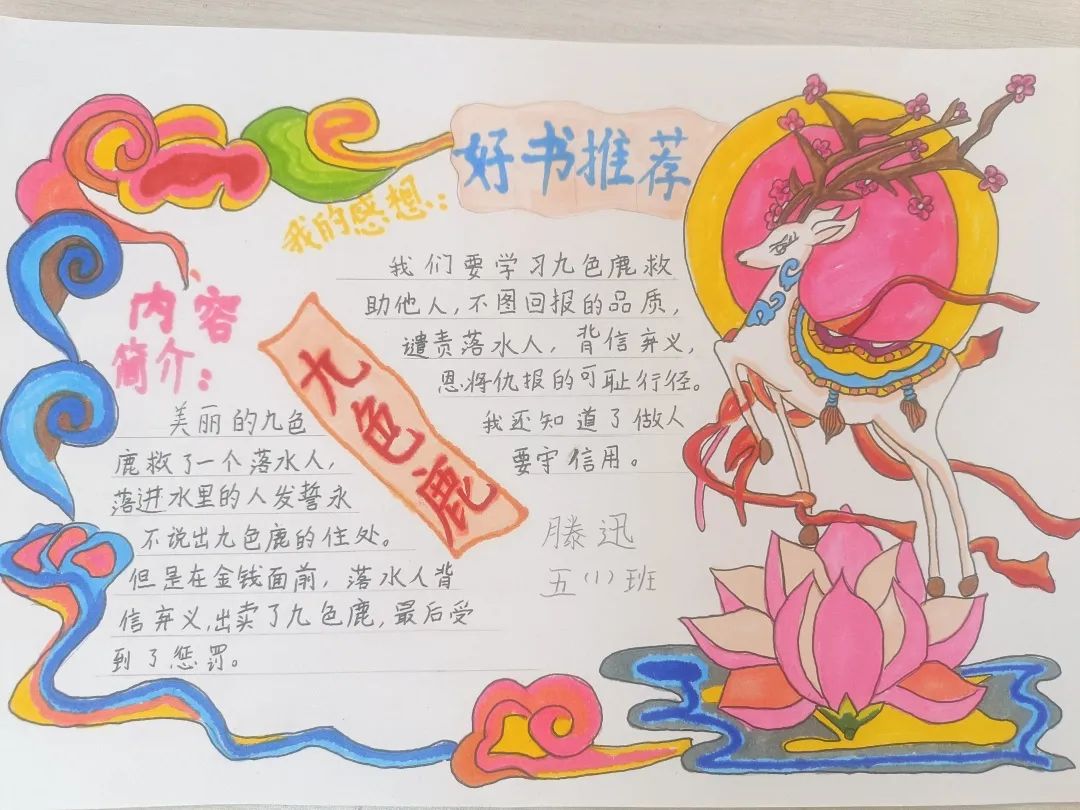 好书推荐
我的感想：
我们要学习九色鹿救
助他人，不图回报的品质，
谴责落水人，背信弃义，
恩将仇报的可耻行径。
我还知道了做人
要守信用。
九色鹿
内容
简介：
美丽的九色
鹿救了一个落水人，
落进水里的人发誓永
不说出九色鹿的住处。
但是在金钱面前，落水人背
信弃义，出卖了九色鹿，最后受
到了惩罚。
滕迅
五（1）班